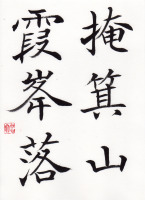 掩箕山
霞峯落